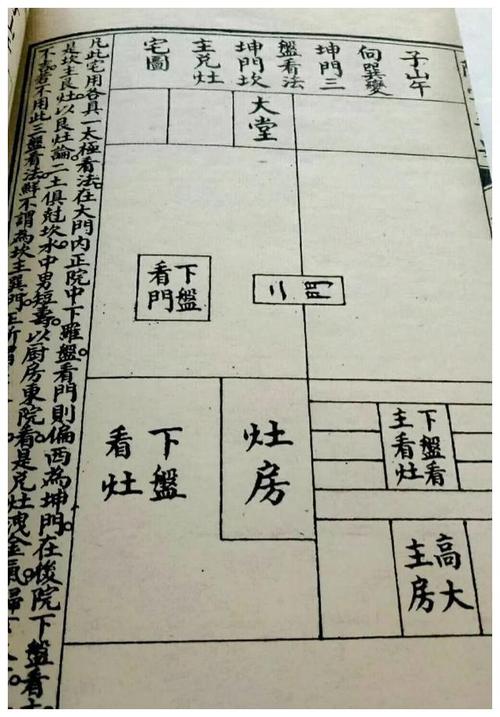 子山午
向巽變
坤門三
盤看法
坤門坎
主兌灶
宅圖
大堂
二門
下盤
看門
灶房
下盤
看灶
下盤看
主看灶
高大
主房
凡此宅用各具一太極看法。在大門內正院中下羅盤看門則偏西為坤門。在後院下盤看主
是坎主艮灶。以艮灶論。二土俱尅坎水。中男短壽。以厨房東院看是兌灶。洩金氣歸
不用此三盤看法。鮮不謂為坎主巽門。正所謂